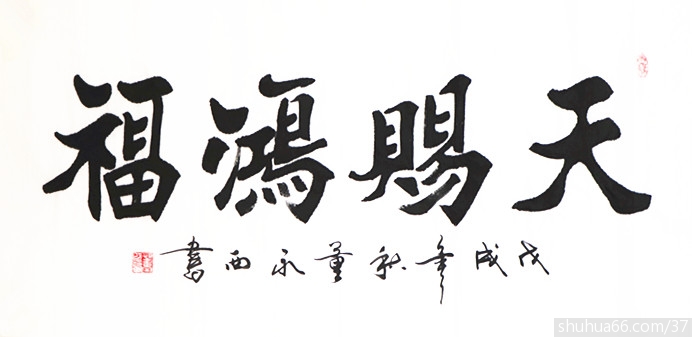 天賜鴻福
戊戌年秋董永西書
shuhua66.com/37